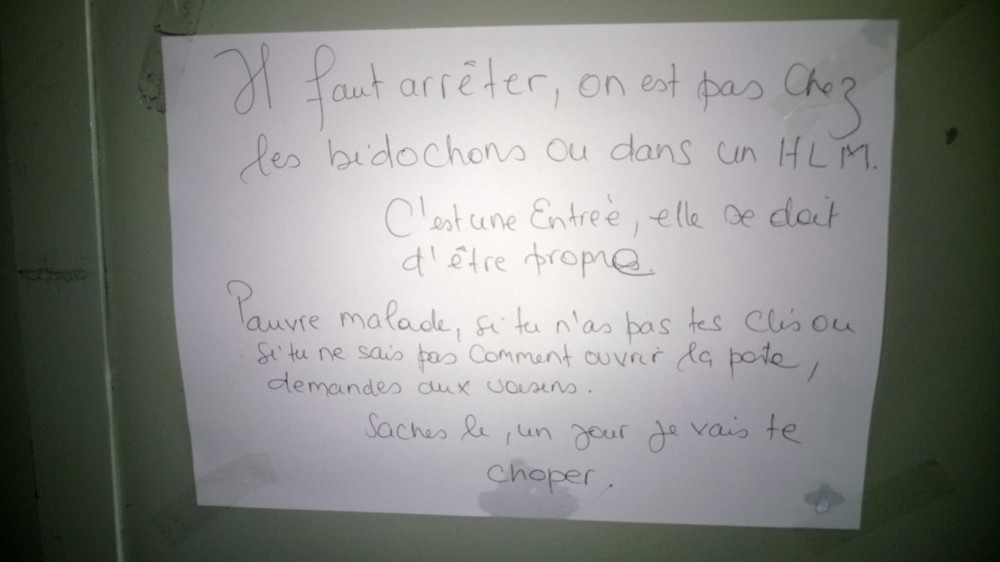 Il faut arrêter, on est pas chez
les bidochons ou dans un HLM.
C'est une Entreè, elle se doit
d'être propre.
Pauvre malade, si tu n'as pas tes clés ou
si tu ne sais pas comment ouvrir la porte,
demandes aux voisins.
Saches le, un jour je vais te
choper.